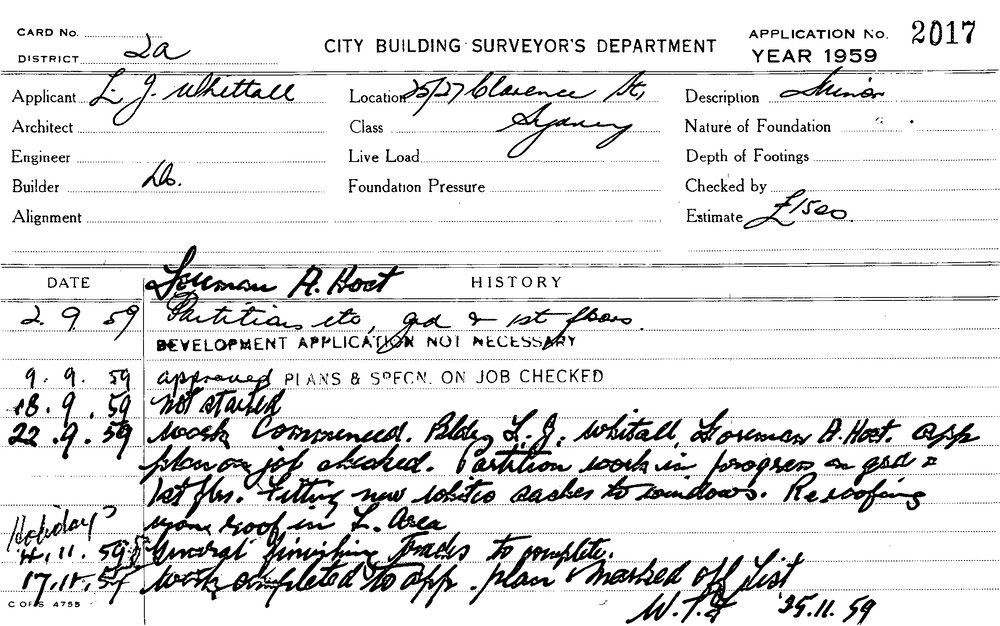 CARD No.
DISTRICT 2a
CITY BUILDING SURVEYOR'S DEPARTMENT
APPLICATION No. 2017
YEAR 1959
Applicant L. J. Whittall
Location 25/27 Clarence St,
Description Minor
Architect
Class Sydney
Nature of Foundation
Engineer
Live Load
Depth of Footings
Builder Do.
Foundation Pressure
Checked by
Alignment
Estimate £1500
DATE Foreman A. Hoct HISTORY
2. 9. 59 Partitions etc, grd & 1st floors.
DEVELOPMENT APPLICATION NOT NECESSARY
9. 9. 59 approved PLANS & SPECN. ON JOB CHECKED
18. 9. 59 not started
22. 9. 59 work Commenced. Bldg L. J. Whitall, Foreman A. Hoct. app
plan on job checked. Partition work in progress on grd &
1st flrs. Fitting new sashes to windows. Reroofing
roof in L. Area
Holiday
4. 11. 59 General finishing Trades to complete.
17. 11. 59 work completed to app. plan & marked off List
W. T. 25. 11. 59
C OF S 4755